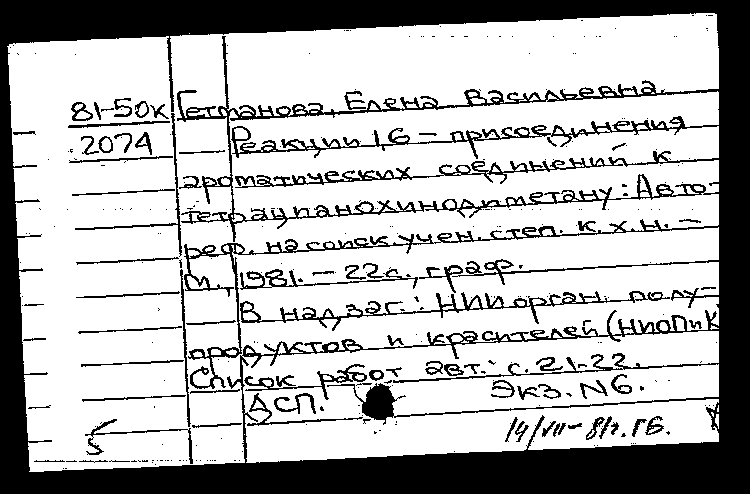 81-50к Гетманова, Елена Васильевна.
2074 Реакции 1,6 – присоединения
ароматических соединений к
тетрацианохинодиметану: Авто-
реф. на соиск. учен. степ. к. х. н. –
М., 1981. – 22 с., граф.
В надзаг.: НИИ орган. полу-
продуктов и красителей (НИОПиК
Список работ авт.: с. 21-22.
ДСП. Экз. N6.
5 14/VII – 81г. ГБ.